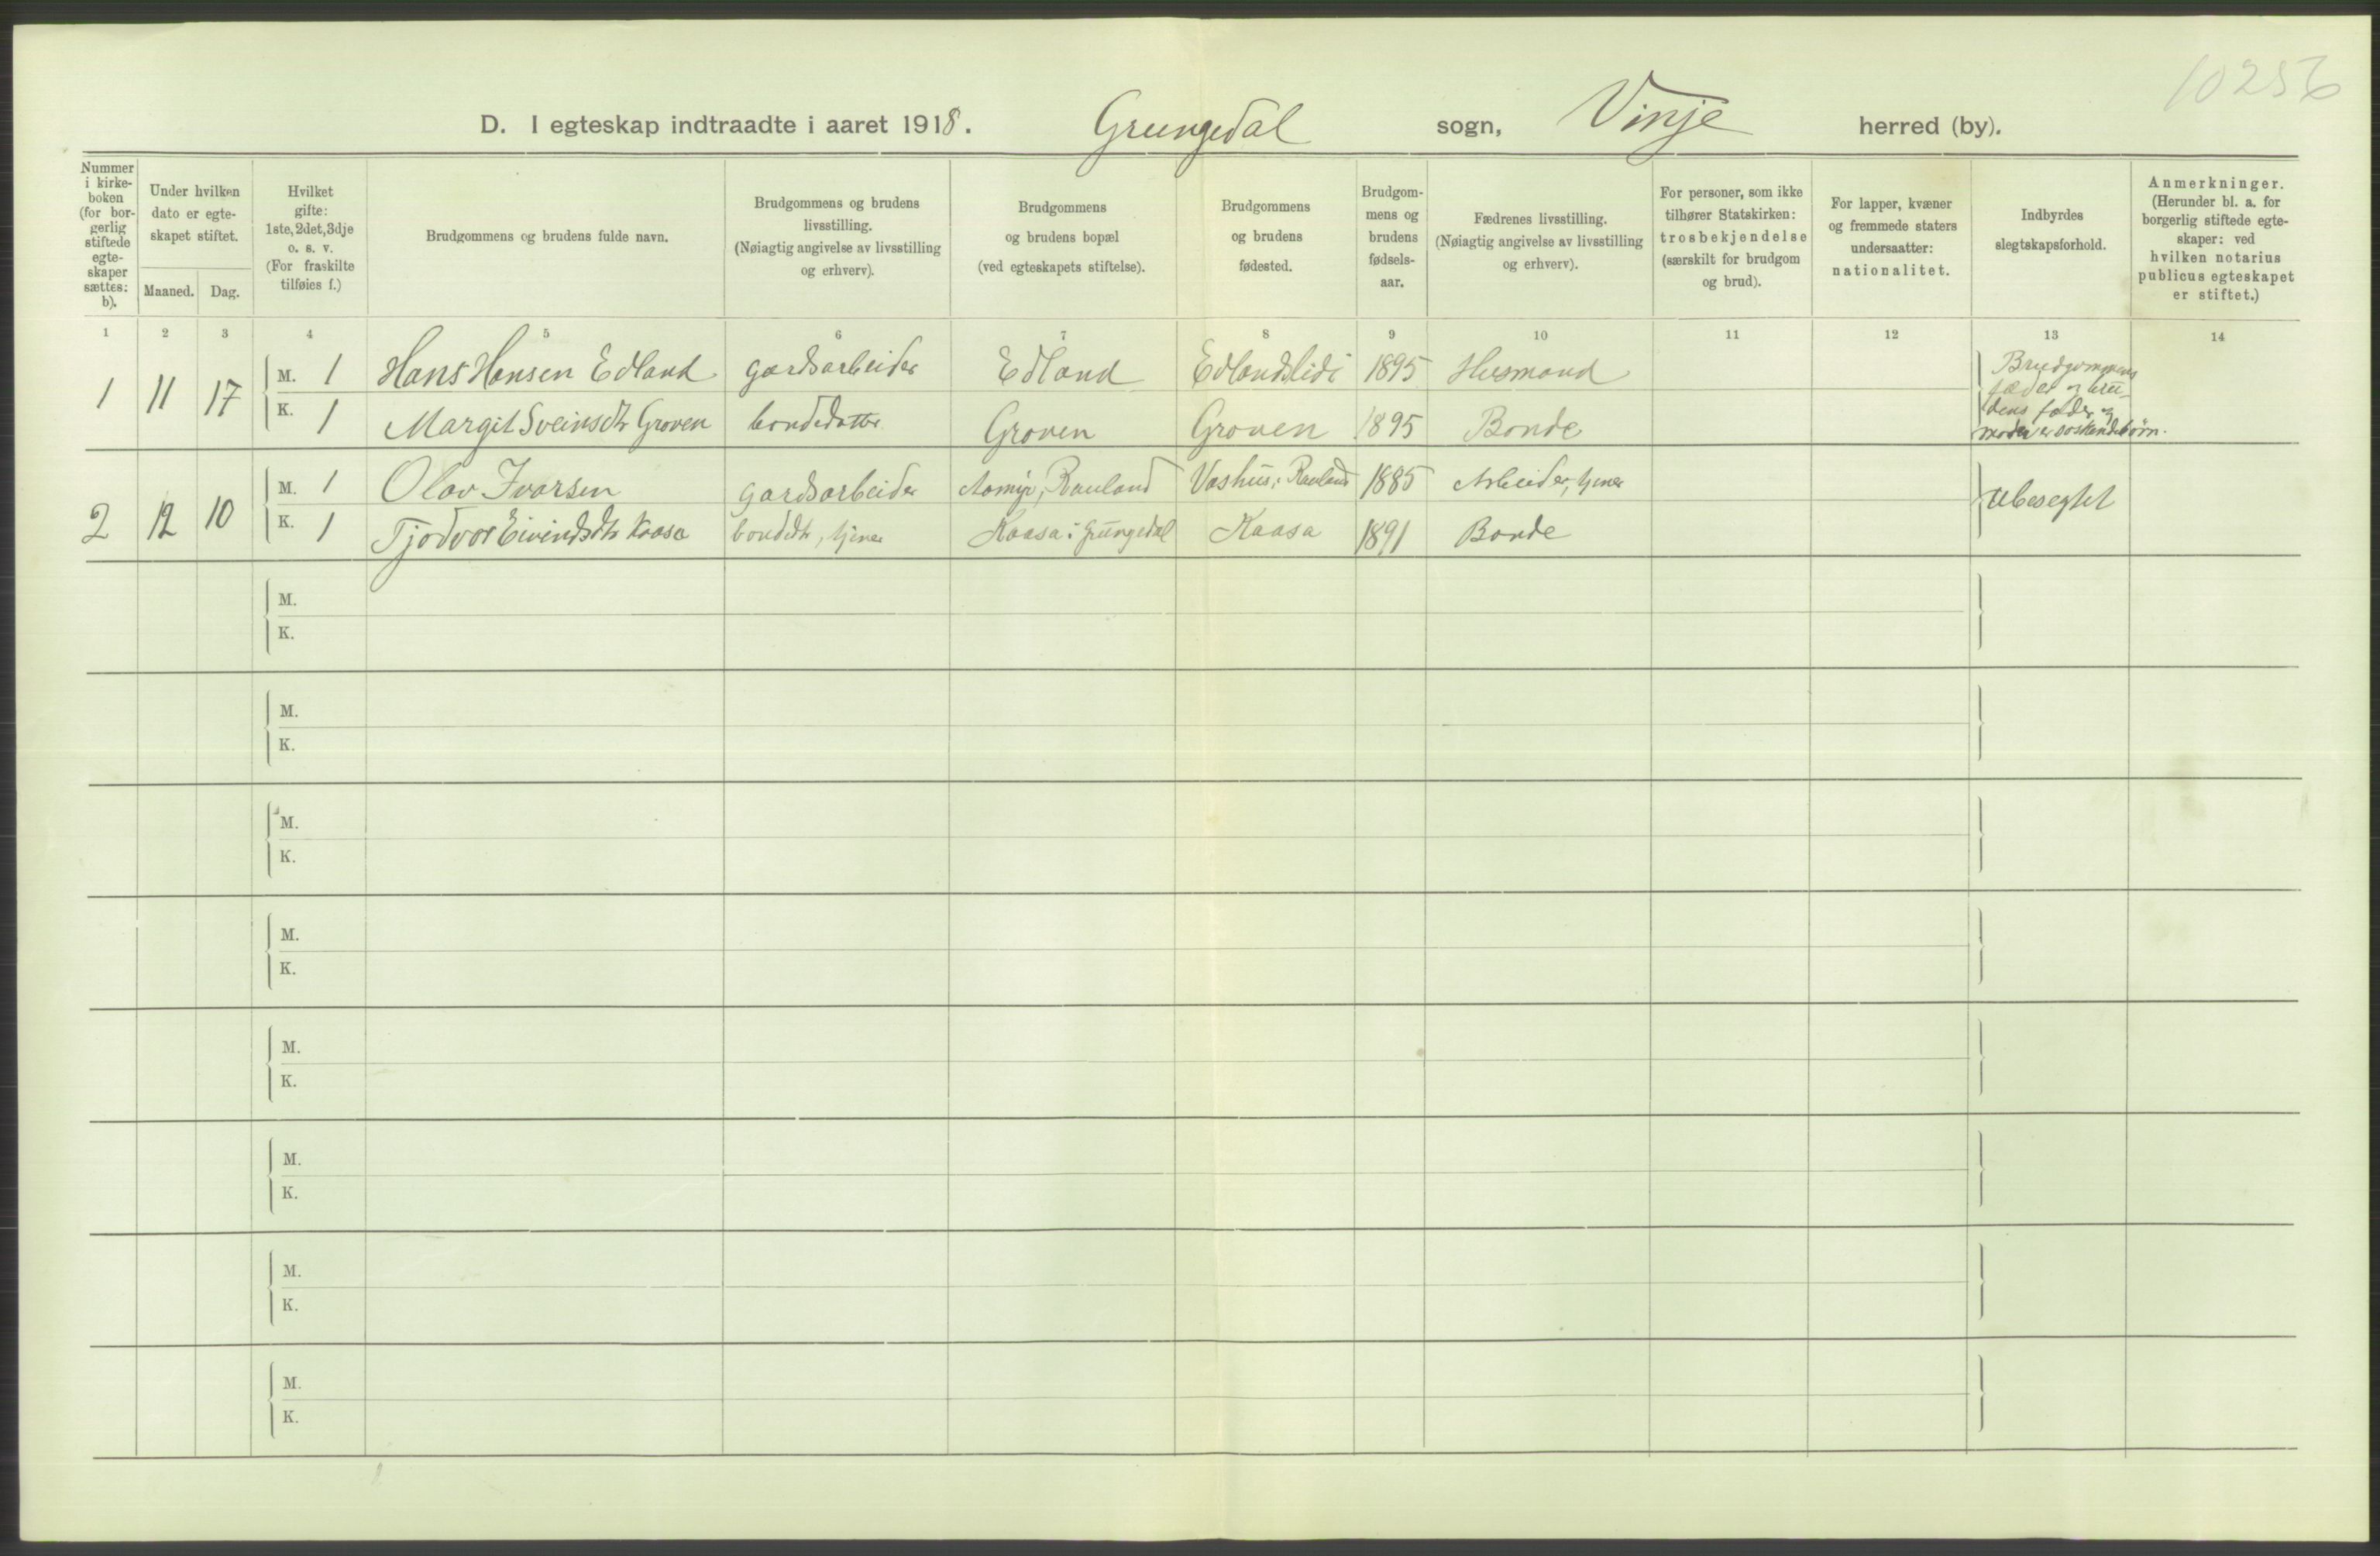 10256
D. I egteskap indtraadte i aaret 1918. Grungedal sogn, Vinje herred (by).
Nummer
i kirke-
boken
(for bor-
gerlig
stiftede
egte-
skaper
sættes:
b).
Under hvilken
dato er egte-
skapet stiftet.
Maaned. Dag.
Hvilket
gifte:
1ste, 2det, 3dje
o. s. v.
(For fraskilte
tilføies f.)
Brudgommens og brudens fulde navn.
Brudgommens og brudens
livsstilling.
(Nøiagtig angivelse av livsstilling
og erhverv).
Brudgommens
og brudens bopæl
(ved egteskapets stiftelse).
Brudgommens
og brudens
fødested.
Brudgom-
mens og
brudens
fødsels-
aar.
Fædrenes livsstilling.
(Nøiagtig angivelse av livsstilling
og erhverv).
For personer, som ikke
tilhører Statskirken:
trosbekjendelse
(særskilt for brudgom
og brud).
For lapper, kvæner
og fremmede staters
undersaatter:
nationalitet.
Indbyrdes
slegtskapsforhold.
Anmerkninger.
(Herunder bl. a. for
borgerlig stiftede egte-
skaper: ved
hvilken notarius
publicus egteskapet
er stiftet.)
1 2 3 4 5 6 7 8 9 10 11 12 13 14
1 11 17
M. 1 Hans Hansen Edland gardsarbeider Edland Edlandslidi 1895 Husmand
K. 1 Margit Sveinsdtr Groven bondedatter Groven Groven 1895 Bonde
Brudgommens
fader og bru-
dens fader og
moder er søskendebørn.
2 12 10
M. 1 Olav Ivarsen gardsarbeider Aamyr, Rauland Vashus, Rauland 1885 Arbeider, tjener
K. 1 Tjodvor Eivindsdtr Kaasa bondedtr, tjener Kaasa i Grungedal Kaasa 1891 Bonde
Ubesegtet
M.
K.
M.
K.
M.
K.
M.
K.
M.
K.
M.
K.
M.
K.
M.
K.